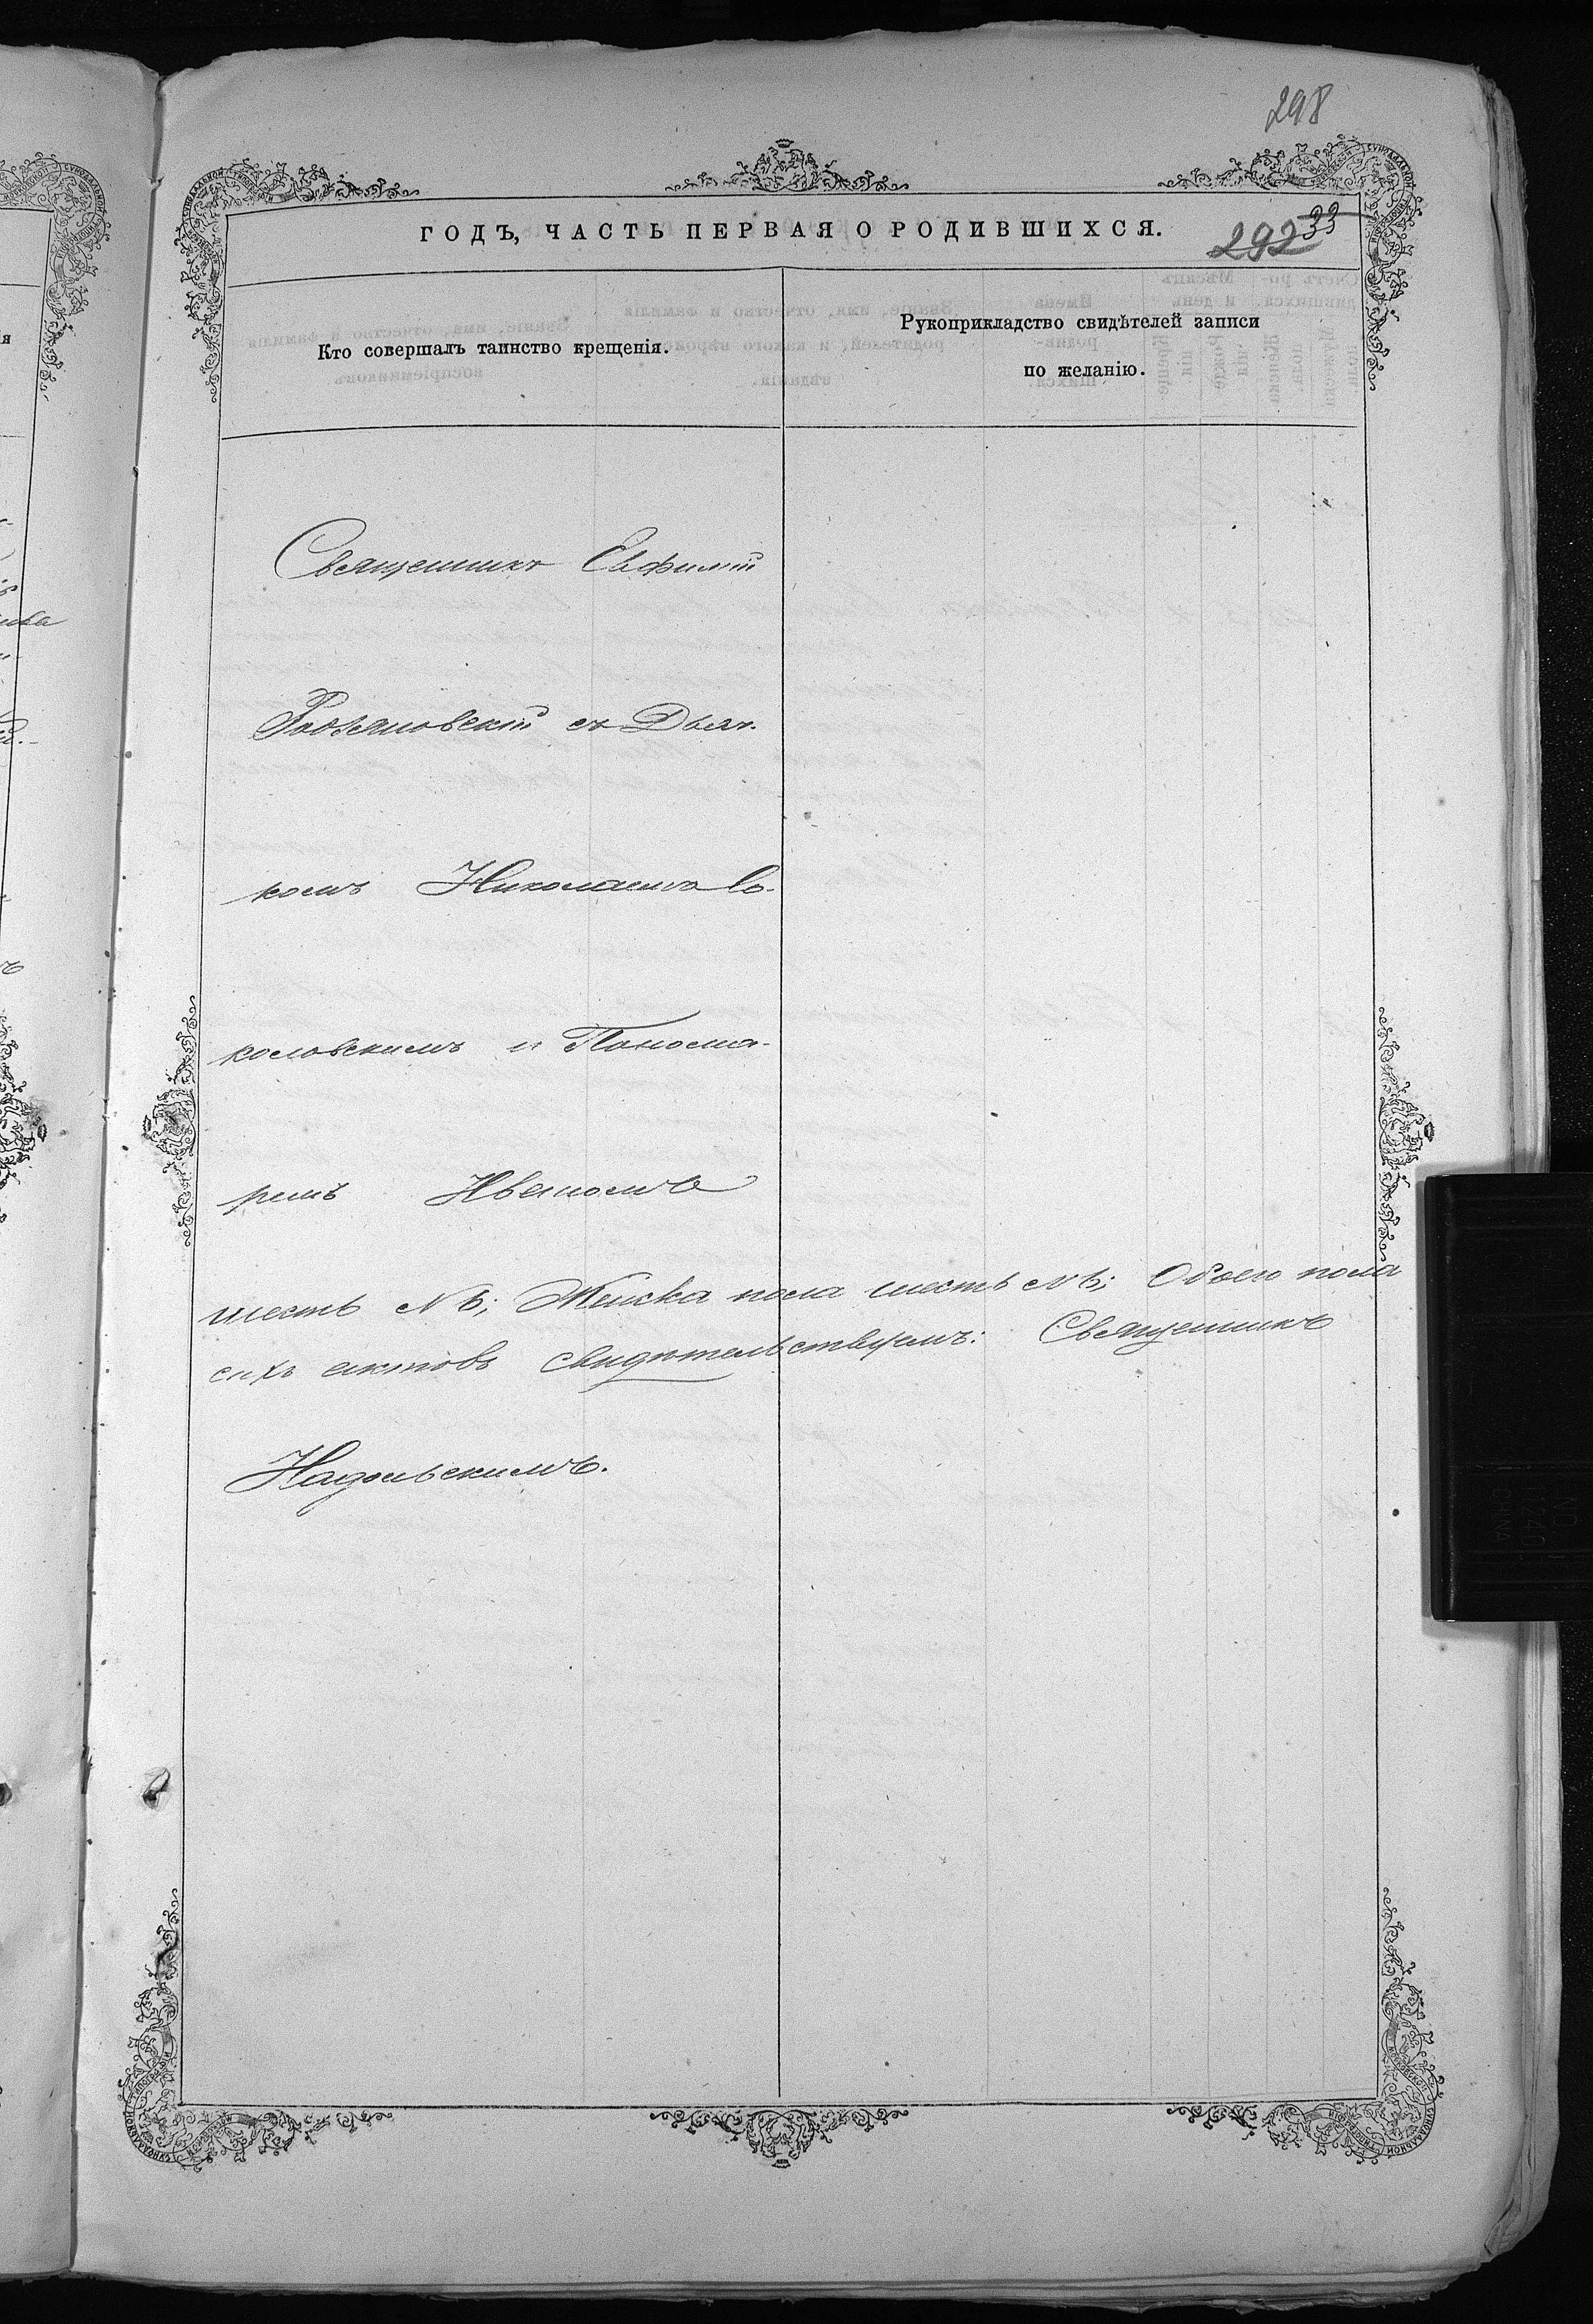 298
ГОДЪ, ЧАСТЬ ПЕРВАЯ О РОДИВШИХСЯ.
292 33
Кто совершалъ таинство крещенія.
Рукоприкладство свидѣтелей записи
по желанію.
Священникъ Евфимій
съ Дьяч-
комъ Николаемъ Со-
коловскимъ и Понома-
ремъ Иваномъ
шесть №; Женска пола шесть №; Обоего пола
сихъ актовъ свидѣтельствуемъ: Священникъ
Надольскимъ.